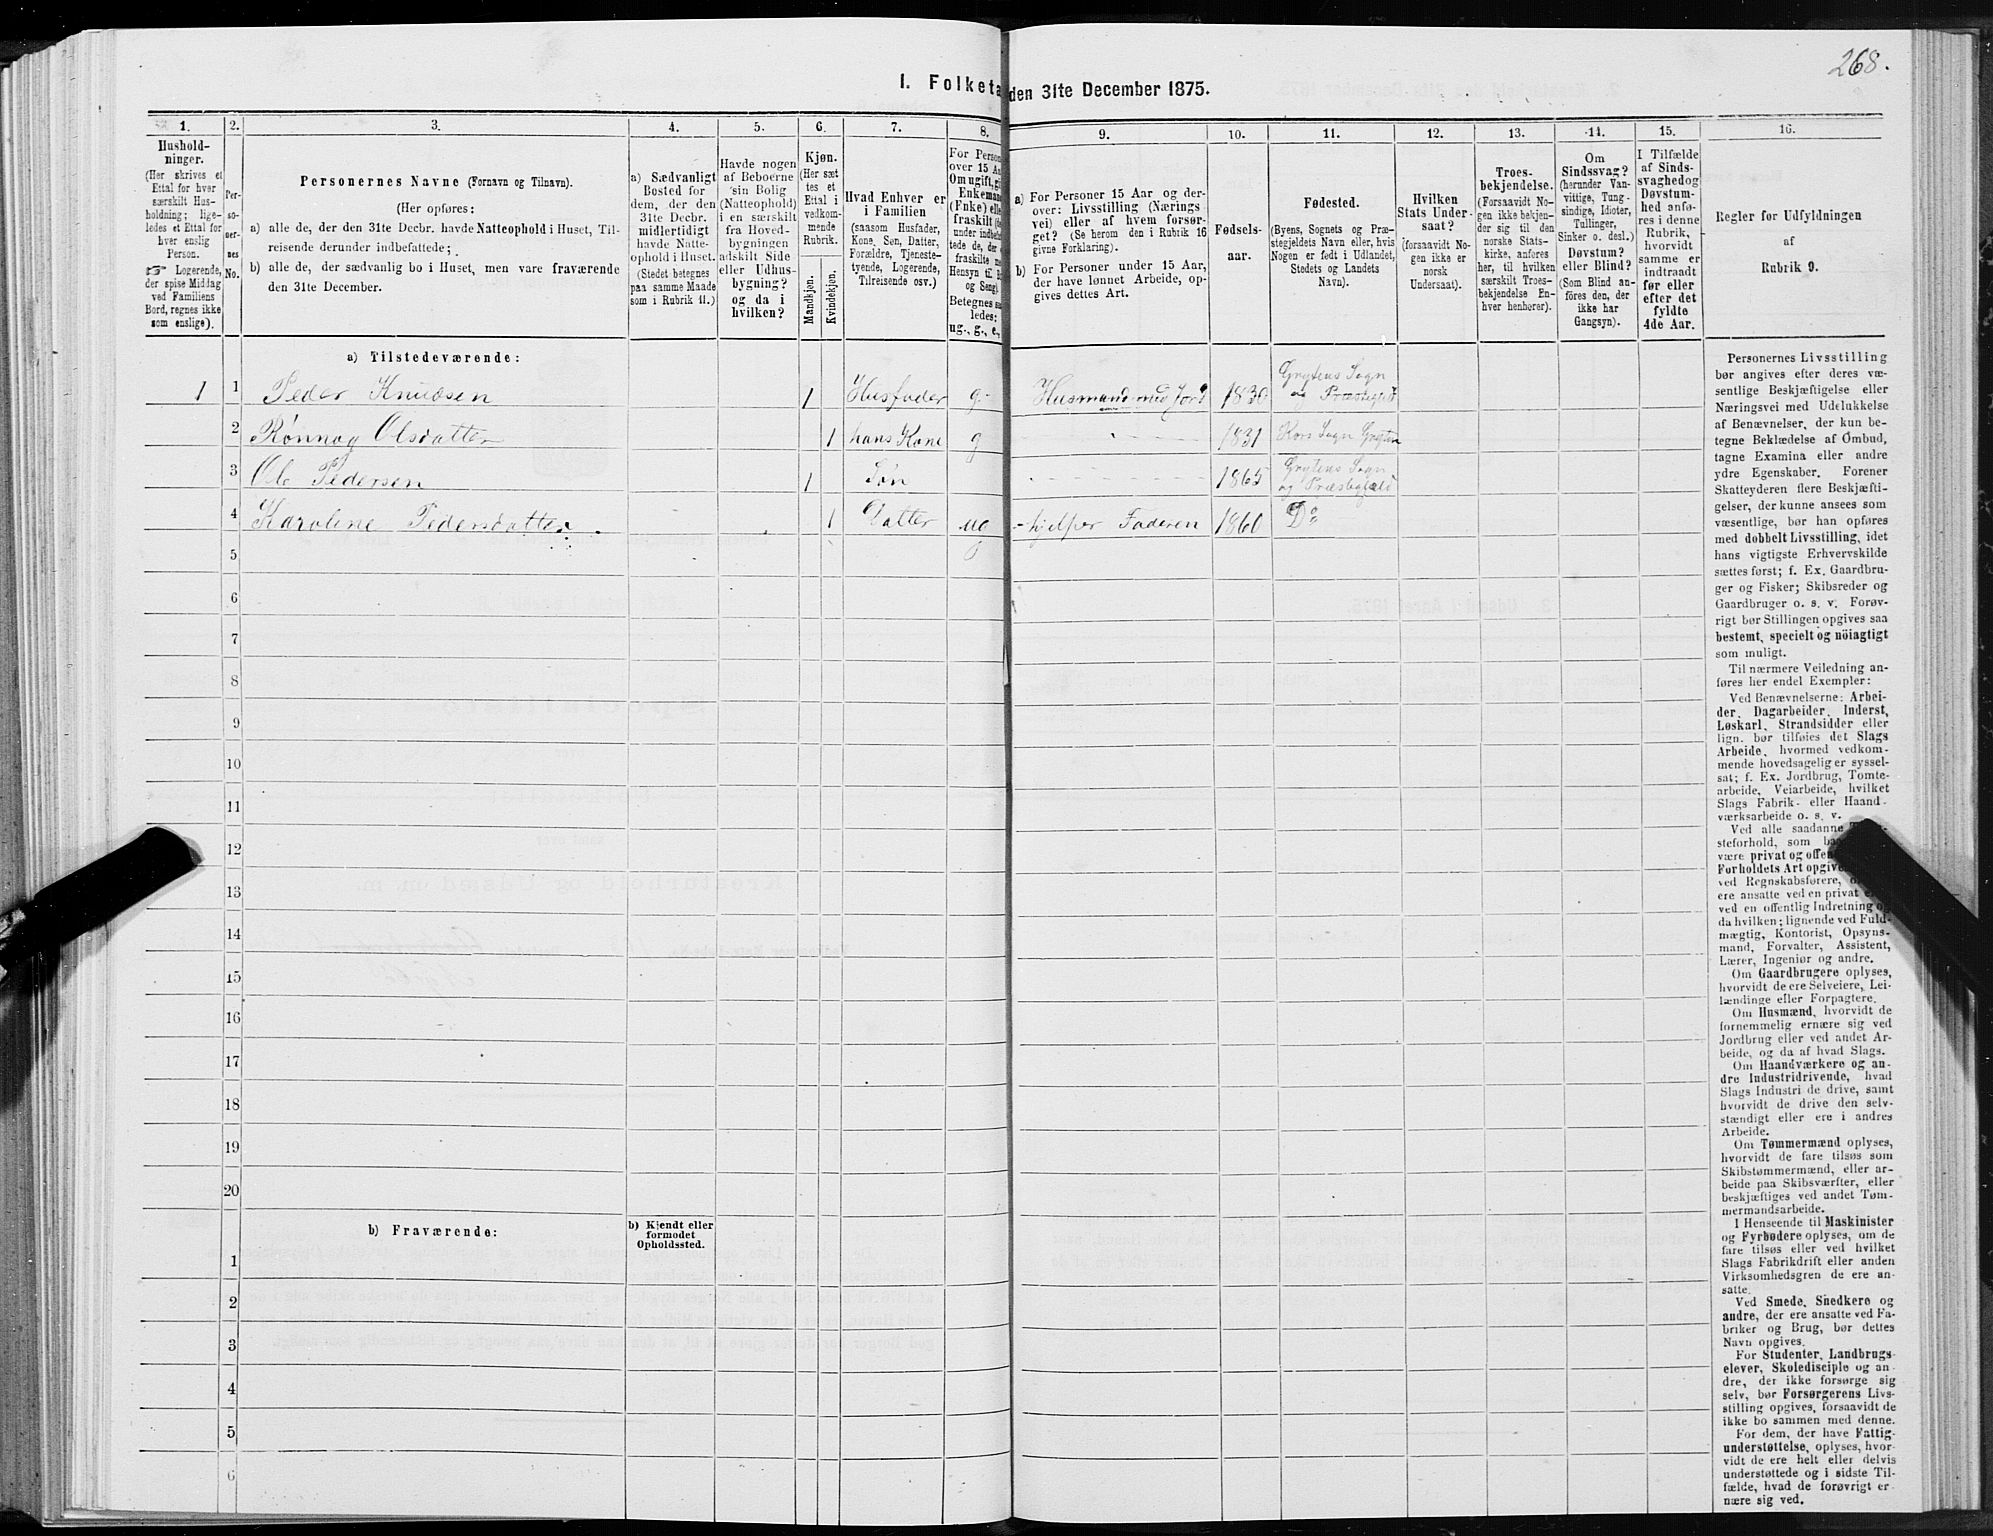 268.
I. Folketa den 31te December 1875.
1. 2. 3. 4. 5. 6. 7. 8. 9. 10. 11. 12. 13. 14. 15. 16.
Hushold-
ninger.
(Her skrives et
Ettal for hver
særskilt Hus-
holdning; lige-
ledes et Ettal for
hver enslig
Person.
☞ Logerende,
der spise Middag
ved Familiens
Bord, regnes ikke
som enslige).
Per-
so-
ner-
nes
No.
Personernes Navne (Fornavn og Tilnavn).
(Her opføres:
a) alle de, der den 31te Decbr. havde Natteophold i Huset, Til-
reisende derunder indbefattede;
b) alle de, der sædvanlig bo i Huset, men vare fraværende
den 31te December.
a) Sædvanligt
Bosted for
dem, der den
31te Decbr.
midlertidigt
havde Natte-
ophold i Huset.
(Stedet betegnes
paa samme Maade
som i Rubrik 11.)
Havde nogen
af Beboerne
sin Bolig
(Natteophold)
i en særskilt
fra Hoved-
bygningen
adskilt Side
eller Udhus-
bygning?
og da i
hvilken?
Kjøn.
(Her sæt
tes et
Ettal i
vedkom-
mende
Rubrik.
Mandkjøn.
Kvindekjøn.
Hvad Enhver er
i Familien
(saasom Husfader,
Kone, Søn, Datter,
Forældre, Tjeneste-
tyende, Logerende,
Tilreisende osv.)
For Person
over 15 Aa
Om ugift, gi
Enkeman
(Enke) elle
fraskilt
under indbef
tede de, der
fraskilte
Hensyn til B
og Seng).
Betegnes saa
ledes:
ug., g., e.,
a) For Personer 15 Aar og der-
over: Livsstilling (Nærings
vei) eller af hvem forsør-
get? (Se herom den i Rubrik 16
givne Forklaring).
b) For Personer under 15 Aar,
der have lønnet Arbeide, op-
gives dettes Art.
Fødsels-
aar.
Fødested.
(Byens, Sognets og Præ-
stegjeldets Navn eller, hvis
Nogen er født i Udlandet,
Stedets og Landets
Navn).
Hvilken
Stats Under-
saat?
(forsaavidt No-
gen ikke er
norsk
Undersaat).
Troes-
bekjendelse.
(Forsaavidt No-
gen ikke bekjen-
der sig til den
norske Stats-
kirke, anføres
her, til hvilken
særskilt Troes-
bekjendelse En-
hver henhører).
Om
Sindssvag?
(herunder Van-
vittige, Tung-
sindige, Idioter,
Tullinger,
Sinker o. desl.)
Døvstum?
eller Blind?
(Som Blind an-
føres den, der
ikke har
Gangsyn).
I Tilfælde
af Sinds-
svaghed og
Døvstum-
hed anfø-
res i denne
Rubrik,
hvorvidt
samme er
indtraadt
før eller
efter det
fyldte
4de Aar.
Regler for Udfyldningen
af
Rubrik 9.
a) Tilstedeværende:
1 1 Peder Knudsen 1 Husfader g Husmand med Jord 1830 Grytens Sogn
og Præstegjeld
2 Rønnog Olsdatter 1 hans Kone g 1831 Kors Sogn Gryten
3 Ole Pedersen 1 Søn 1865 Grytens Sogn
og Præstegjeld
4 Karoline Pedersdatter 1 Datter ug hjelper Faderen 1860 Do
5
6
7
8
9
10
11
12
13
14
15
16
17
18
19
20
b) Fraværende:
b) Kjendt eller
formodet
Opholdssted.
1
2
3
4
5
6
Personernes Livsstilling
bør angives efter deres væ-
sentlige Beskjæftigelse eller
Næringsvei med Udelukkelse
af Benævnelser, der kun be-
tegne Beklædelse af Ombud,
tagne Examina eller andre
ydre Egenskaber. Forener
Skatteyderen flere Beskjæfti-
gelser, der kunne ansees som
væsentlige, bør han opføres
med dobbelt Livsstilling, idet
hans vigtigste Erhvervskilde
sættes først; f. Ex. Gaardbru-
ger og Fisker; Skibsreder og
Gaardbruger o. s. v. Forøv-
rigt bør Stillingen opgives saa
bestemt, specielt og nöiagtigt
som muligt.
Til nærmere Veiledning an-
føres her endel Exempler:
Ved Benævnelserne: Arbei-
der, Dagarbeider, Inderst,
Løskarl, Strandsidder eller
lign. bør tilføies det Slags
Arbeide, hvormed vedkom-
mende hovedsagelig er syssel-
sat; f. Ex. Jordbrug, Tomte-
arbeide, Veiarbeide, hvilket
Slags Fabrik- eller Haand-
værksarbeide o. s. v.
Ved alle saadanne
steforhold, som
være privat og offen
Forholdets Art opgive
ved Regnskabsførere,
ere ansatte ved en privat
ved en offentlig Indretning og
da hvilken; lignende ved Fuld-
mægtig, Kontorist, Opsyns-
mand, Forvalter, Assistent,
Lærer, Ingeniør og andre.
Om Gaardbrugere oplyses,
hvorvidt de ere Selveiere, Lei-
lændinge eller Forpagtere.
Om Husmænd, hvorvidt de
fornemmelig ernære sig ved
Jordbrug eller ved andet Ar-
beide, og da af hvad Slags.
Om Haandværkere og an-
dre Industridrivende, hvad
Slags Industri de drive, samt
hvorvidt de drive den selv-
stændigt eller ere i andres
Arbeide.
Om Tømmermænd oplyses,
hvorvidt de fare tilsøs som
Skibstømmermænd, eller ar-
beide paa Skibsværfter, eller
beskjæftiges ved andet Tøm-
mermandsarbeide.
I Henseende til Maskinister
og Fyrbødere oplyses, om de
fare tilsøs eller ved hvilket
Slags Fabrikdrift eller anden
Virksomhedsgren de ere an-
satte.
Ved Smede, Snedkere og
andre, der ere ansatte ved Fa-
briker og Brug, bør dettes
Navn opgives.
For Studenter, Landbrugs-
elever, Skoledisciple og an-
dre, der ikke forsørge sig
selv, bør Forsørgerens Livs-
stilling opgives, forsaavidt de
ikke bo sammen med denne.
For dem, der have Fattig-
understøttelse, oplyses, hvor-
vidt de ere helt eller delvis
understøttede og i sidste Til-
fælde, hvad de forøvrigt er-
nære sig ved.